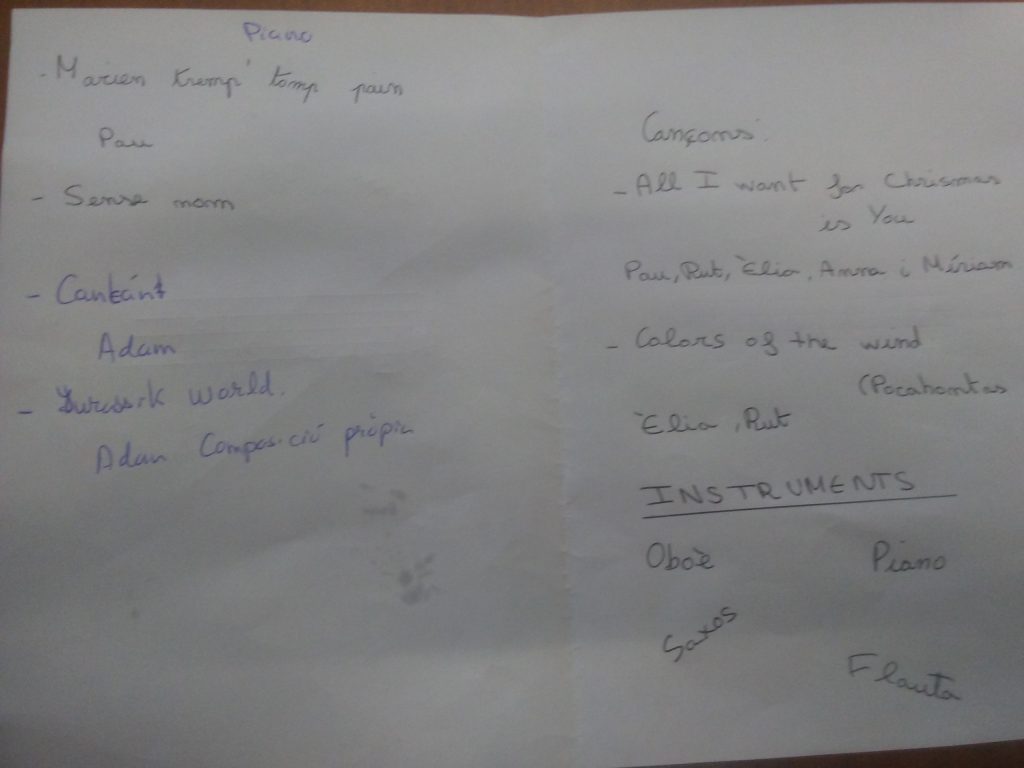 Piano
- Marien tremp' tomp paun
Pau
- Sense nom
- Cantánt
Adam
- Juressik world.
Adan Composició pròpia
Cançons:
- All I want for Chrismas
is You
Pau, Rut, Èlia, Anna i Míriam
- Colors of the wind
(Pocahontas
Èlia, Rut
INSTRUMENTS
Oboè Piano
Saxos
Flauta